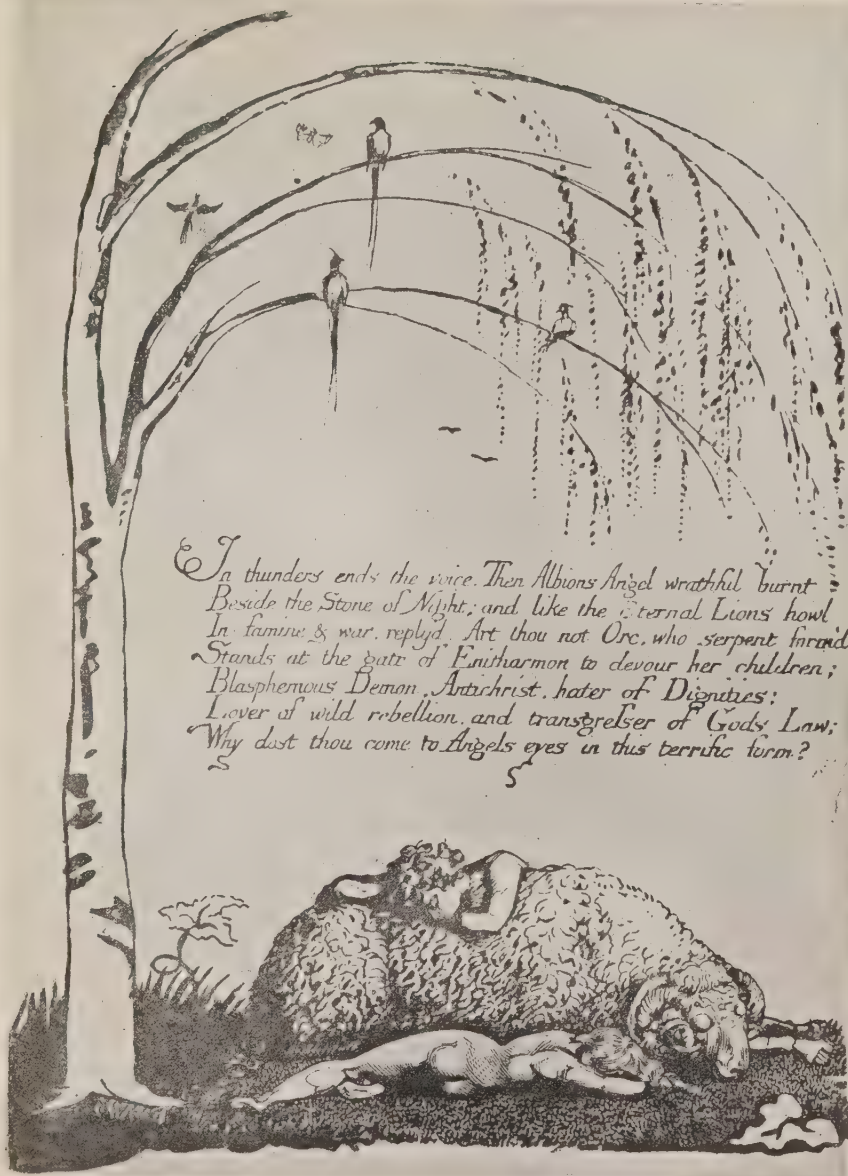 In thunders ends the voice. Then Albions Angel wrathful burnt
Beside the Stone of Night; and like the Eternal Lions howl
In famine & war, reply'd. Art thou not Orc, who serpent form'd
Stands at the gate of Enitharmon to devour her children;
Blasphemous Demon, Antichrist, hater of Dignities;
Lover of wild rebellion, and transgresser of Gods Law;
Why dost thou come to Angels eyes in this terrific form?